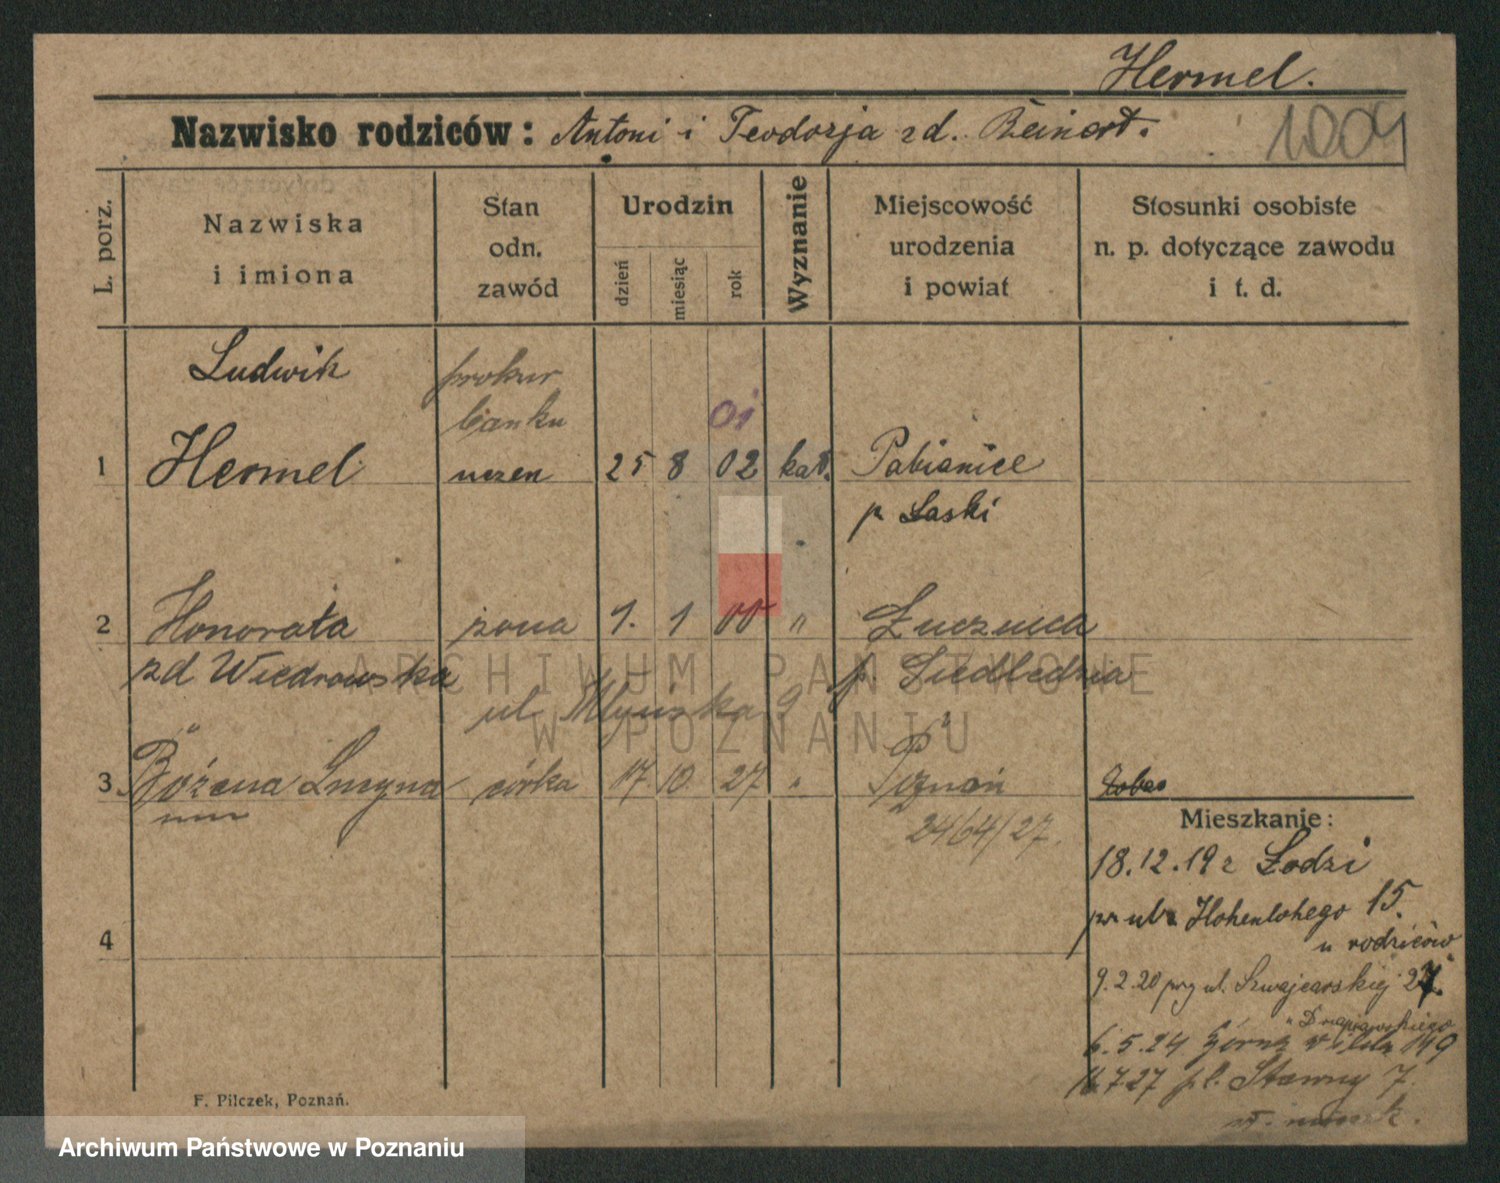 Hermel.
Nazwisko rodziców: Antoni i Teodozja zd. Beinert.
1004
L. porz.
Nazwiska i imiona
Stan odn. zawód
Urodzin
dzień
miesiąc
rok
Wyznanie
Miejscowość urodzenia i powiat
Stosunki osobiste n. p. dotyczące zawodu i t. d.
Ludwik prokur
banku 01
1 Hermel uczen 25 8 02 kat. Pabianice
p Łaski
2 Honorata żona 1. 1 00 " Łucznica
zd Wiedrowska p. Siedledzia
ul. Młyńska 9
3 Bożena Lucyna córka 17. 10. 27 " Poznań
2464/27.
Mieszkanie:
18.12.19 z Łodzi
ul. Hohenlohego 15.
u rodziców
4
9.2.20 przy ul. Szwajcarskiej 27.
6.5.24 Górna Wilda 149
16.7.27 pl. Stawny 7.
F. Pilczek, Poznań.
ARCHIWUM PAŃSTWOWE
W POZNANIU
Archiwum Państwowe w Poznaniu